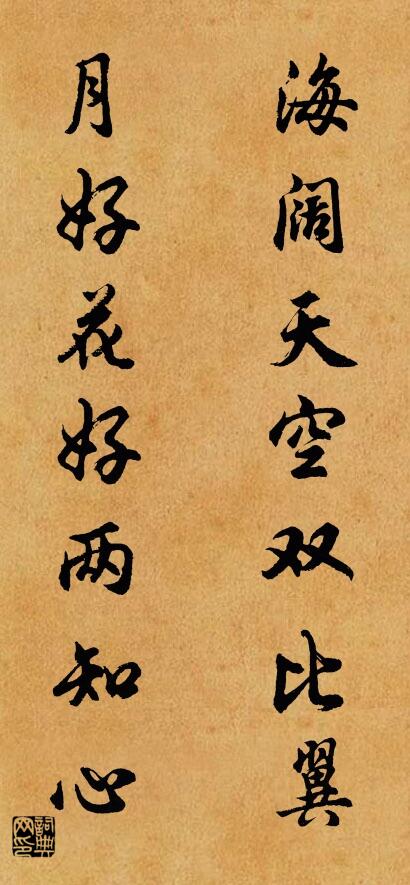 海阔天空双比翼
月好花好两知心
詞典网印